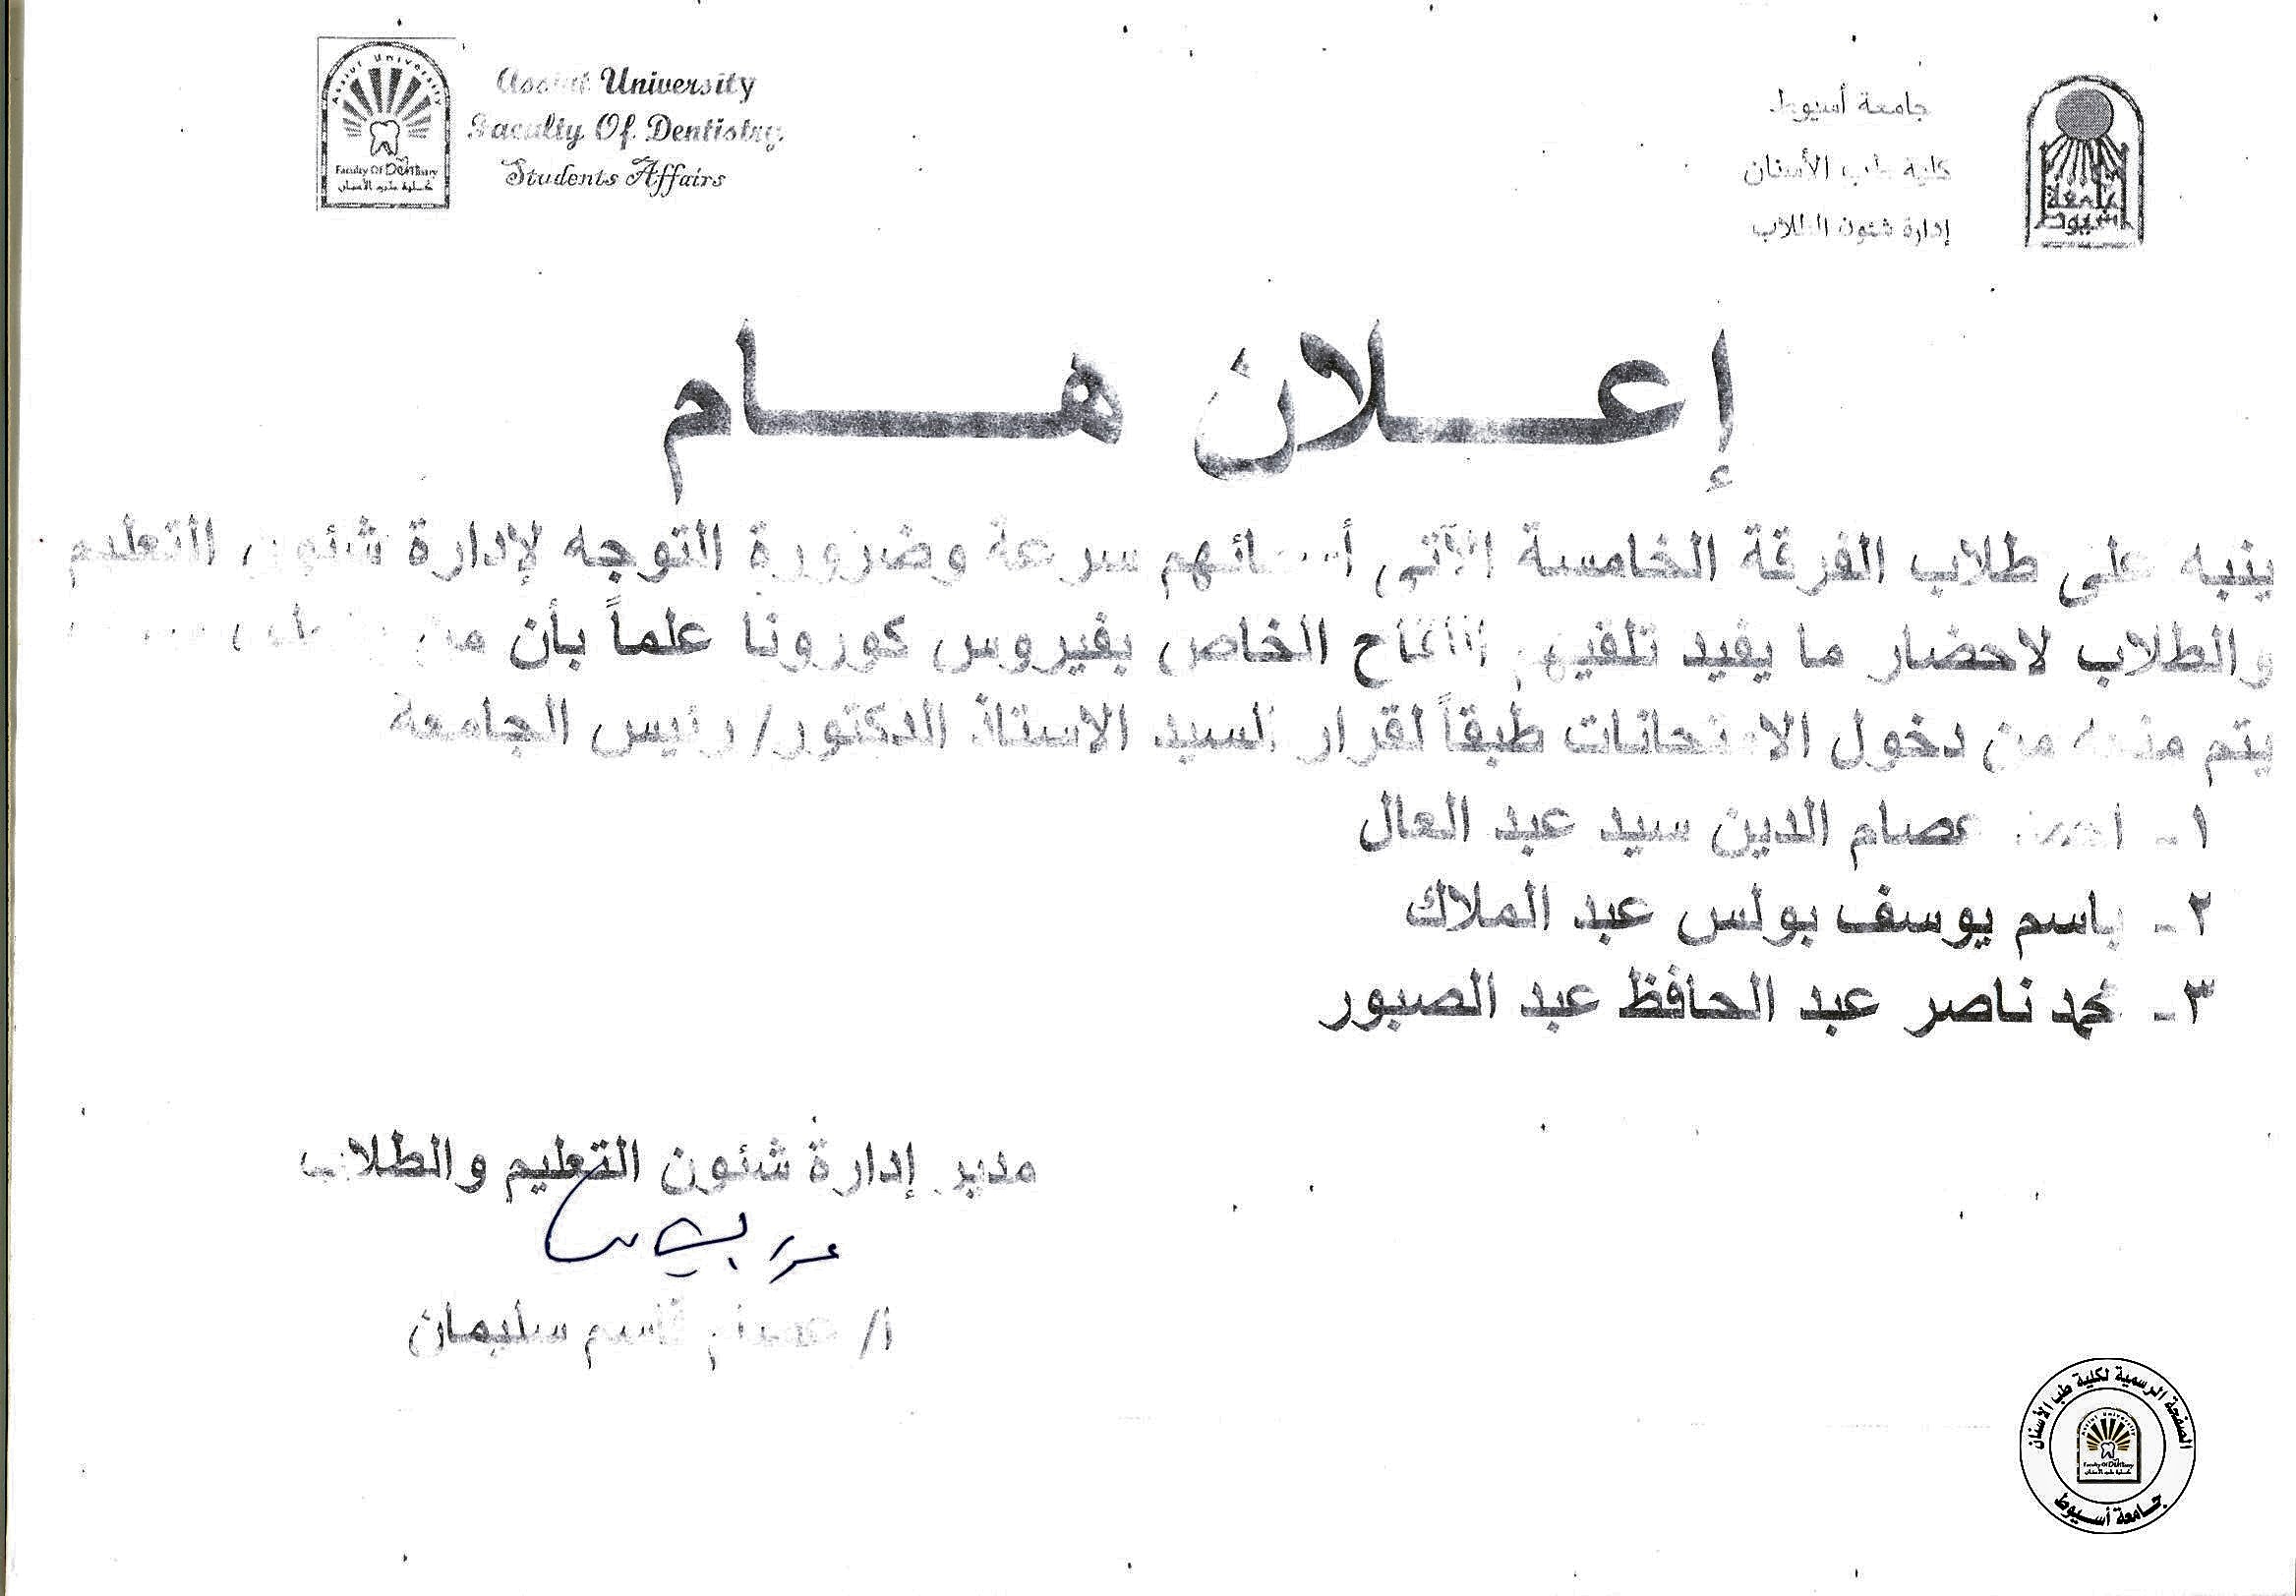 Assiut University
Faculty Of Dentistry
Students Affairs
Assiut University
Faculty Of Dentistry
كلية طب الأسنان
جامعة أسيوط
كلية طب الأسنان
إدارة شئون الطلاب
جامعة أسيوط
إعلان هام
ينبه على طلاب الفرقة الخامسة الآتى أسمائهم سرعة وضرورة التوجه لإدارة شئون التعليم
والطلاب لاحضار ما يفيد تلقيهم اللقاح الخاص بفيروس كورونا علماً بأن من
يتم منعه من دخول الامتحانات طبقاً لقرار السيد الاستاذ الدكتور/ رئيس الجامعة
١- احمد عصام الدين سيد عبد العال
٢- باسم يوسف بولس عبد الملاك
٣- محمد ناصر عبد الحافظ عبد الصبور
مدير إدارة شئون التعليم والطلاب
أ/ قاسم سليمان
الصفحة الرسمية لكلية طب الأسنان
Assiut University
Faculty Of Dentistry
كلية طب الأسنان
جامعة أسيوط